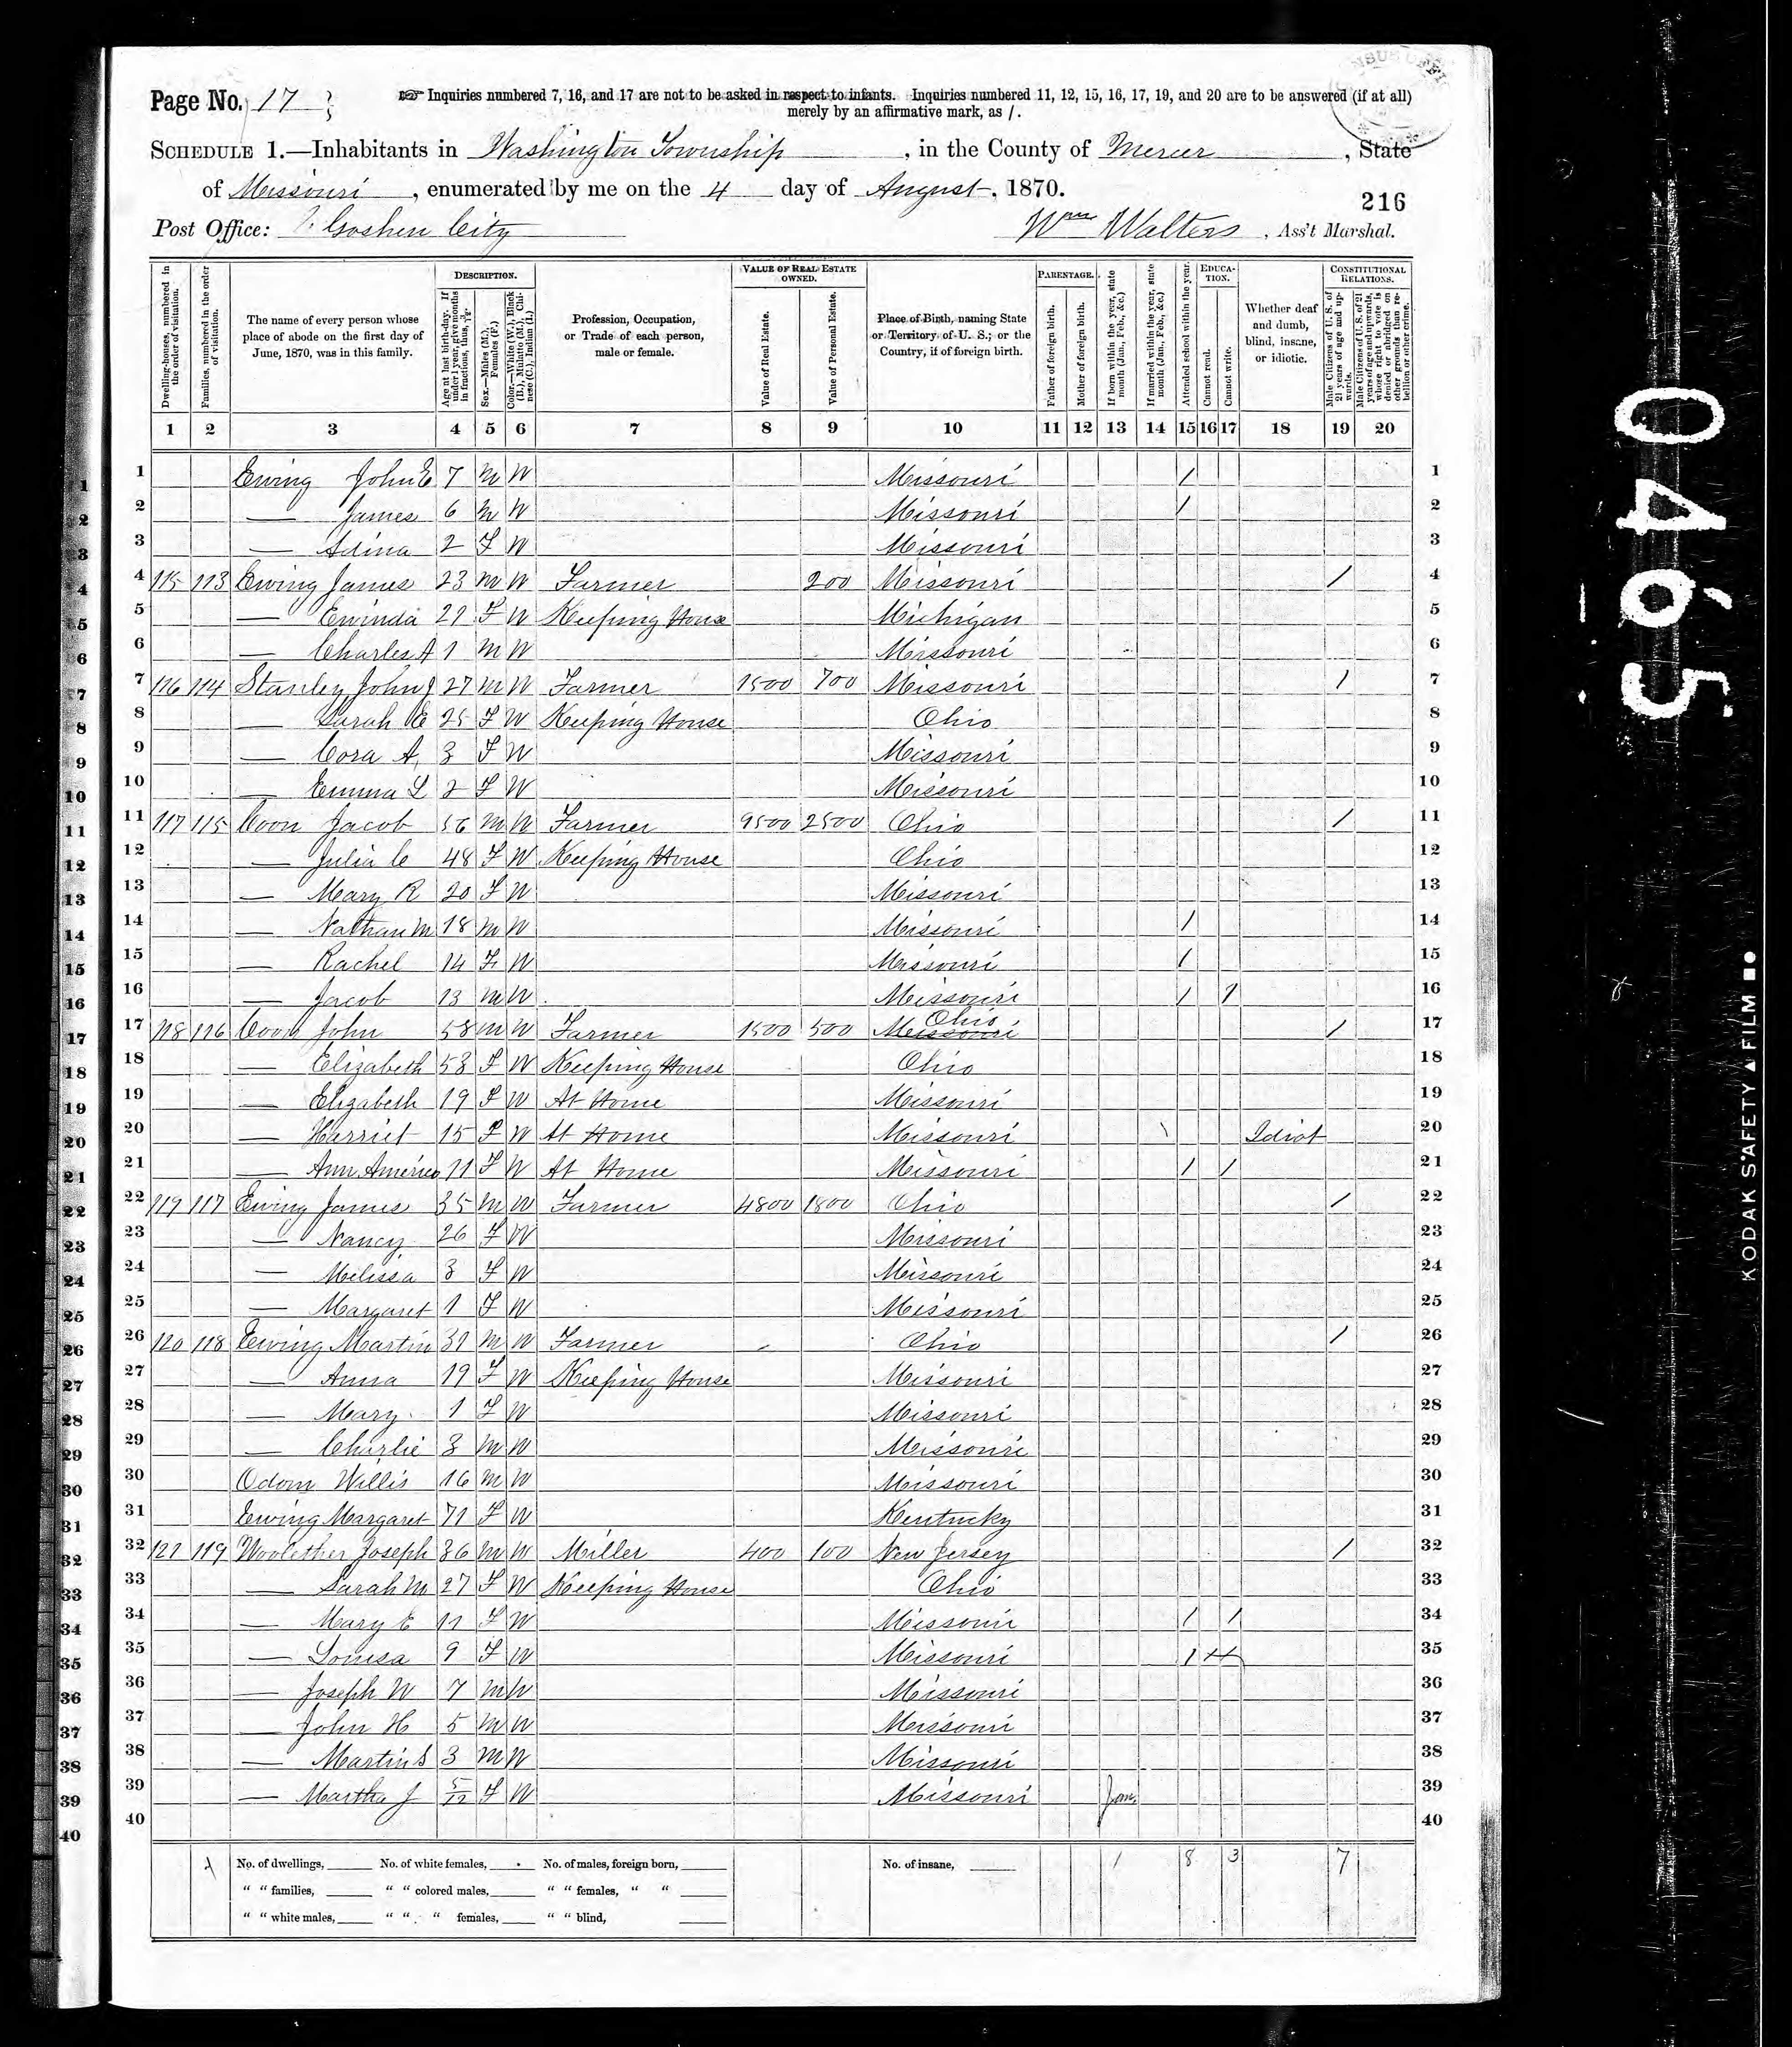 Page No. 17
☞ Inquiries numbered 7, 16, and 17 are not to be asked in respect to infants. Inquiries numbered 11, 12, 15, 16, 17, 19, and 20 are to be answered (if at all)
merely by an affirmative mark, as /.
SCHEDULE 1.—Inhabitants in Washington Township, in the County of Mercer, State
of Missouri, enumerated by me on the 4 day of August, 1870.
216
Post Office: Goshen City
Wm Walters, Ass't Marshal.
Dwelling-houses, numbered in the order of visitation.
Families, numbered in the order of visitation.
The name of every person whose place of abode on the first day of June, 1870, was in this family.
DESCRIPTION.
Age at last birth-day. If under 1 year, give months in fractions, thus, 3/12.
Sex.—Males (M.), Females (F.)
Color.—White (W.), Black (B.), Mulatto (M.), Chinese (C.), Indian (I.)
Profession, Occupation, or Trade of each person, male or female.
VALUE OF REAL ESTATE OWNED.
Value of Real Estate.
Value of Personal Estate.
Place of Birth, naming State or Territory of U. S.; or the Country, if of foreign birth.
PARENTAGE.
Father of foreign birth.
Mother of foreign birth.
If born within the year, state month (Jan., Feb., &c.)
If married within the year, state month (Jan., Feb., &c.)
Attended school within the year.
EDUCATION.
Cannot read.
Cannot write.
Whether deaf and dumb, blind, insane, or idiotic.
CONSTITUTIONAL RELATIONS.
Male Citizens of U. S. of 21 years of age and upwards.
Male Citizens of U. S. of 21 years of age and upwards, whose right to vote is denied or abridged on other grounds than rebellion or other crime.
1 2 3 4 5 6 7 8 9 10 11 12 13 14 15 16 17 18 19 20
1 Ewing John E 7 M W Missouri / 1
2 — James 6 M W Missouri / 2
3 — Adina 2 F W Missouri 3
4 115 113 Ewing James 23 M W Farmer 200 Missouri / 4
5 — Ervinda 21 F W Keeping House Michigan 5
6 — Charles A 1 M W Missouri 6
7 116 114 Stanley John J 27 M W Farmer 1500 700 Missouri / 7
8 — Sarah E 25 F W Keeping House Ohio 8
9 — Cora A, 3 F W Missouri 9
10 — Emma L 2 F W Missouri 10
11 117 115 Coon Jacob 56 M W Farmer 9500 2500 Ohio / 11
12 — Julia C 48 F W Keeping House Ohio 12
13 — Mary R 20 F W Missouri 13
14 — Nathan M 18 M W Missouri / 14
15 — Rachel 14 F W Missouri / 15
16 — Jacob 13 M W Missouri / 1 16
17 118 116 Coon John 58 M W Farmer 1500 500 Missouri Ohio / 17
18 — Elizabeth 53 F W Keeping House Ohio 18
19 — Elizabeth 19 F W At Home Missouri 19
20 — Harriet 15 F W At Home Missouri \ Idiot 20
21 — Ann Americo 11 F W At Home Missouri / / 21
22 119 117 Ewing James 35 M W Farmer 4800 1800 Ohio / 22
23 — Nancy 26 F W Missouri 23
24 — Melissa 3 F W Missouri 24
25 — Margaret 1 F W Missouri 25
26 120 118 Ewing Martin 31 M W Farmer Ohio / 26
27 — Anna 19 F W Keeping House Missouri 27
28 — Mary 1 F W Missouri 28
29 — Charlie 3 M W Missouri 29
30 Odom Willis 16 M W Missouri 30
31 Ewing Margaret 71 F W Kentucky 31
32 121 119 Woolether Joseph 36 M W Miller 400 100 New Jersey / 32
33 — Sarah M 27 F W Keeping House Ohio 33
34 — Mary E 11 F W Missouri / / 34
35 — Louisa 9 F W Missouri / 35
36 — Joseph W 7 M W Missouri 36
37 — John H 5 M W Missouri 37
38 — Martin S 3 M W Missouri 38
39 — Martha J 5/12 F W Missouri Jan. 39
40 40
No. of dwellings, No. of white females, No. of males, foreign born, No. of insane, 1 8 3 7
" " families, " " colored males, " " females, " "
" " white males, " " " females, " " blind,
0495
KODAK SAFETY ▲ FILM ■●